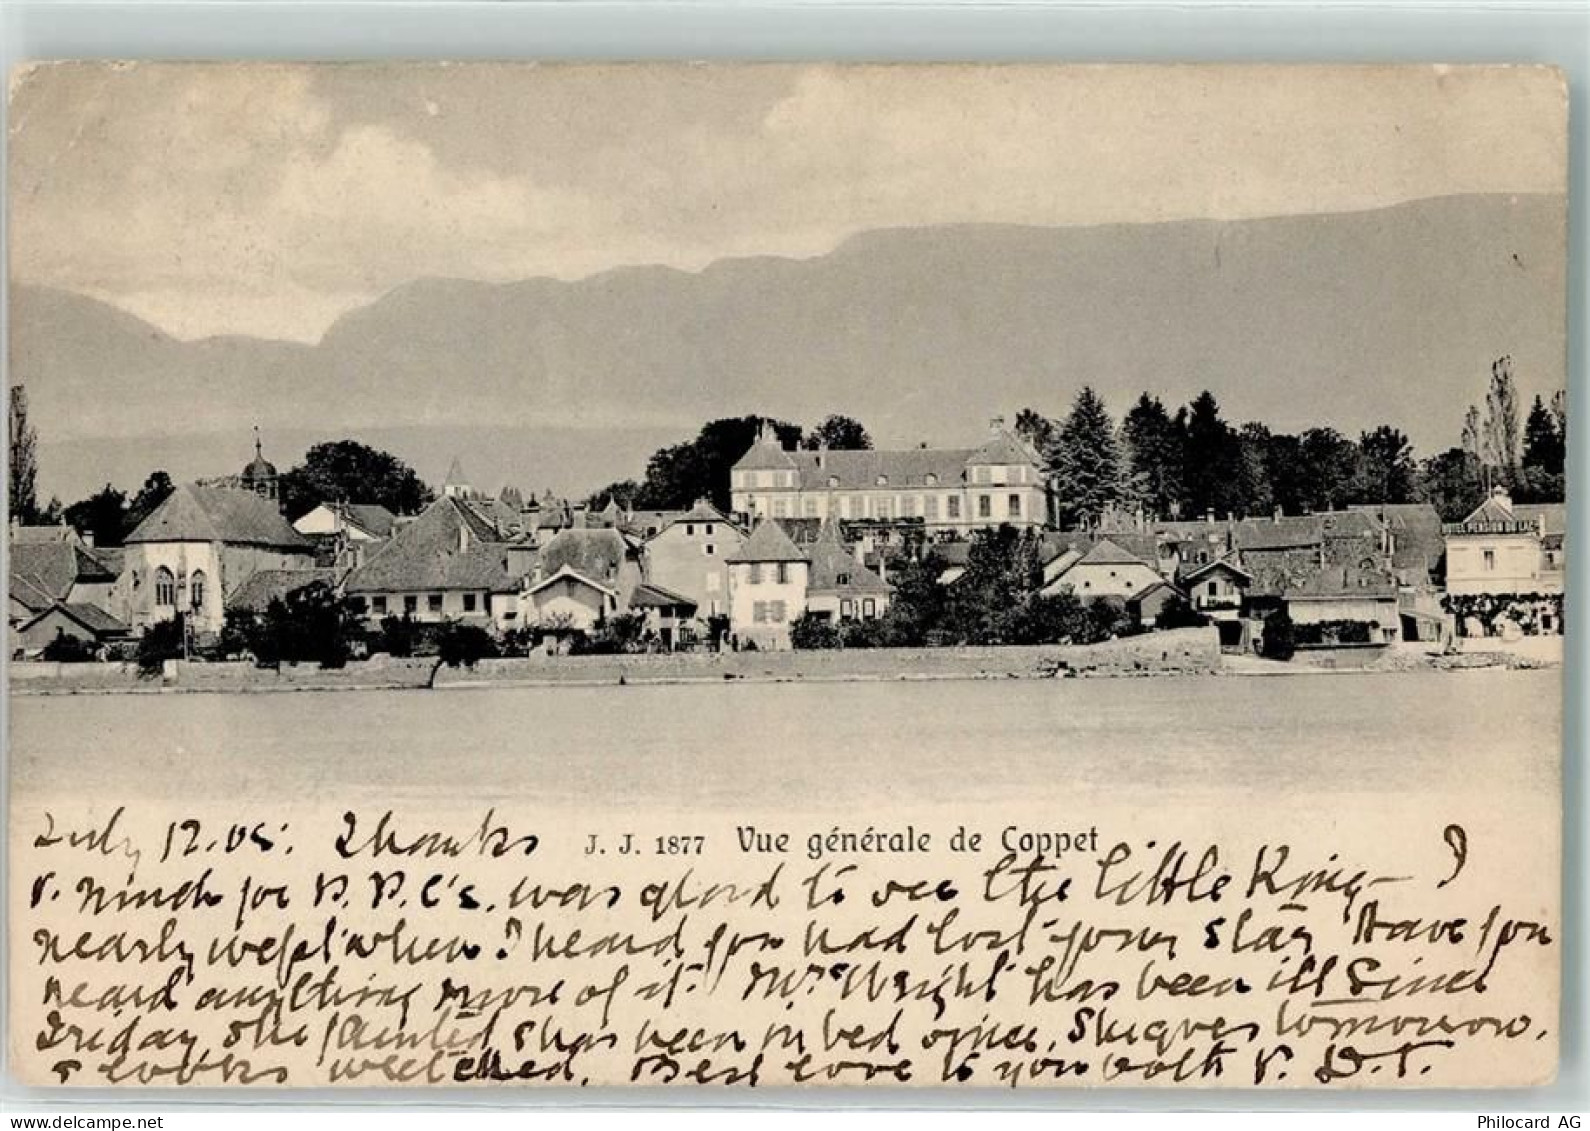 HOTEL PENSION DU LAC
July 12.05. Thanks J. J. 1877 Vue générale de Coppet
v. much for P. P. C's. was glad to see the little King— I
nearly wept when I heard you had lost your stay Have you
heard anything more of it. Mrs Wright has been ill since
Friday she fainted & has been in bed since. She goes tomorrow.
& looks wretched. Best love to you both v. D.T.
Philocard AG